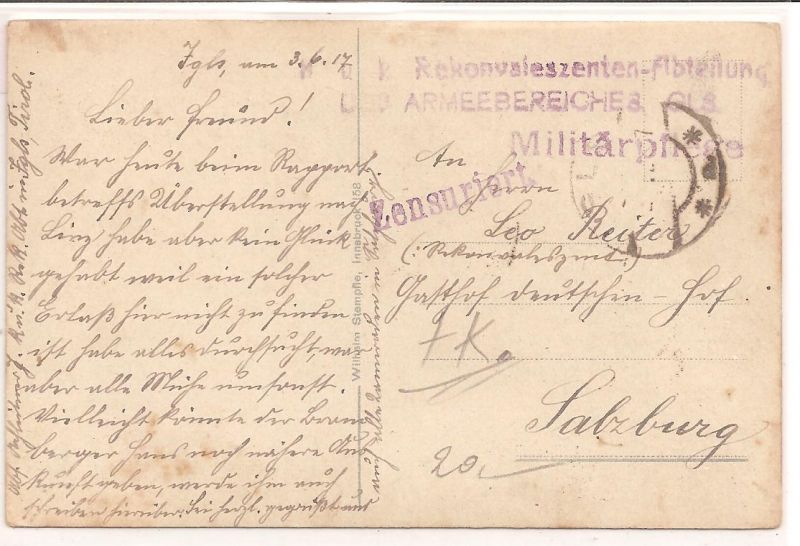 Igls, am 3.6.17
Lieber Freund!
War heute beim Rapport
betreffs Überstellung nach
Linz habe aber kein Glück
gehabt weil ein solcher
Erlaß hier nicht zu finden
ist habe alles durchsucht, war
aber alle Mühe umsonst.
Vielleicht könnte der Bram
berger Hans noch nähere Aus
kunft geben, werde ihm auch
schreiben hierüber. Sei herzl. gegrüßt aus
K. u. K. Rek. Abt. in Igls, Tirol.
Wilhelm Stempfle, Innsbruck 158
k u k Rekonvaleszenten-Abteilung
ARMEEBEREICHES
Militärpflege
Zensuriert
An
Herrn
Leo Reiter
(: Rekonvaleszent :)
Gasthof deutschen-Hof
Salzburg
20